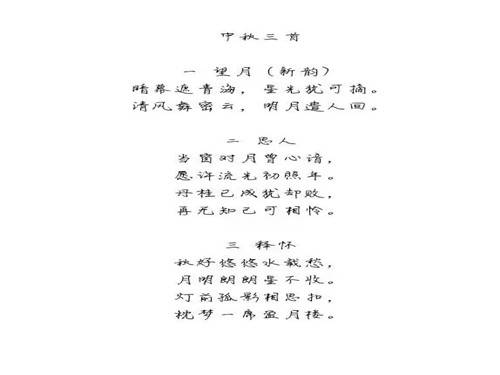 中秋三首
一 望月（新韵）
暗幕遮青海，星光犹可摘。
清风舞密云，明月遣人回。
二 思人
当窗对月曾心谙，
愿许流光初照年。
丹桂已成犹却败，
再无知己可相怜。
三 释怀
秋好悠悠水载愁，
月明朗朗星不收。
灯前孤影相思扣，
枕梦一席盈月楼。